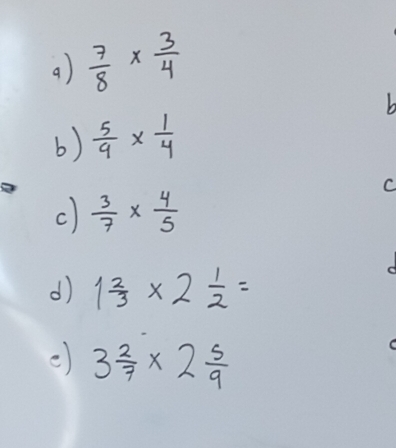 a) 7/8 × 3/4
b) 5/9 × 1/4
c) 3/7 × 4/5
d) 1 2/3 × 2 1/2 =
e) 3 2/7 × 2 5/9
b
c
d